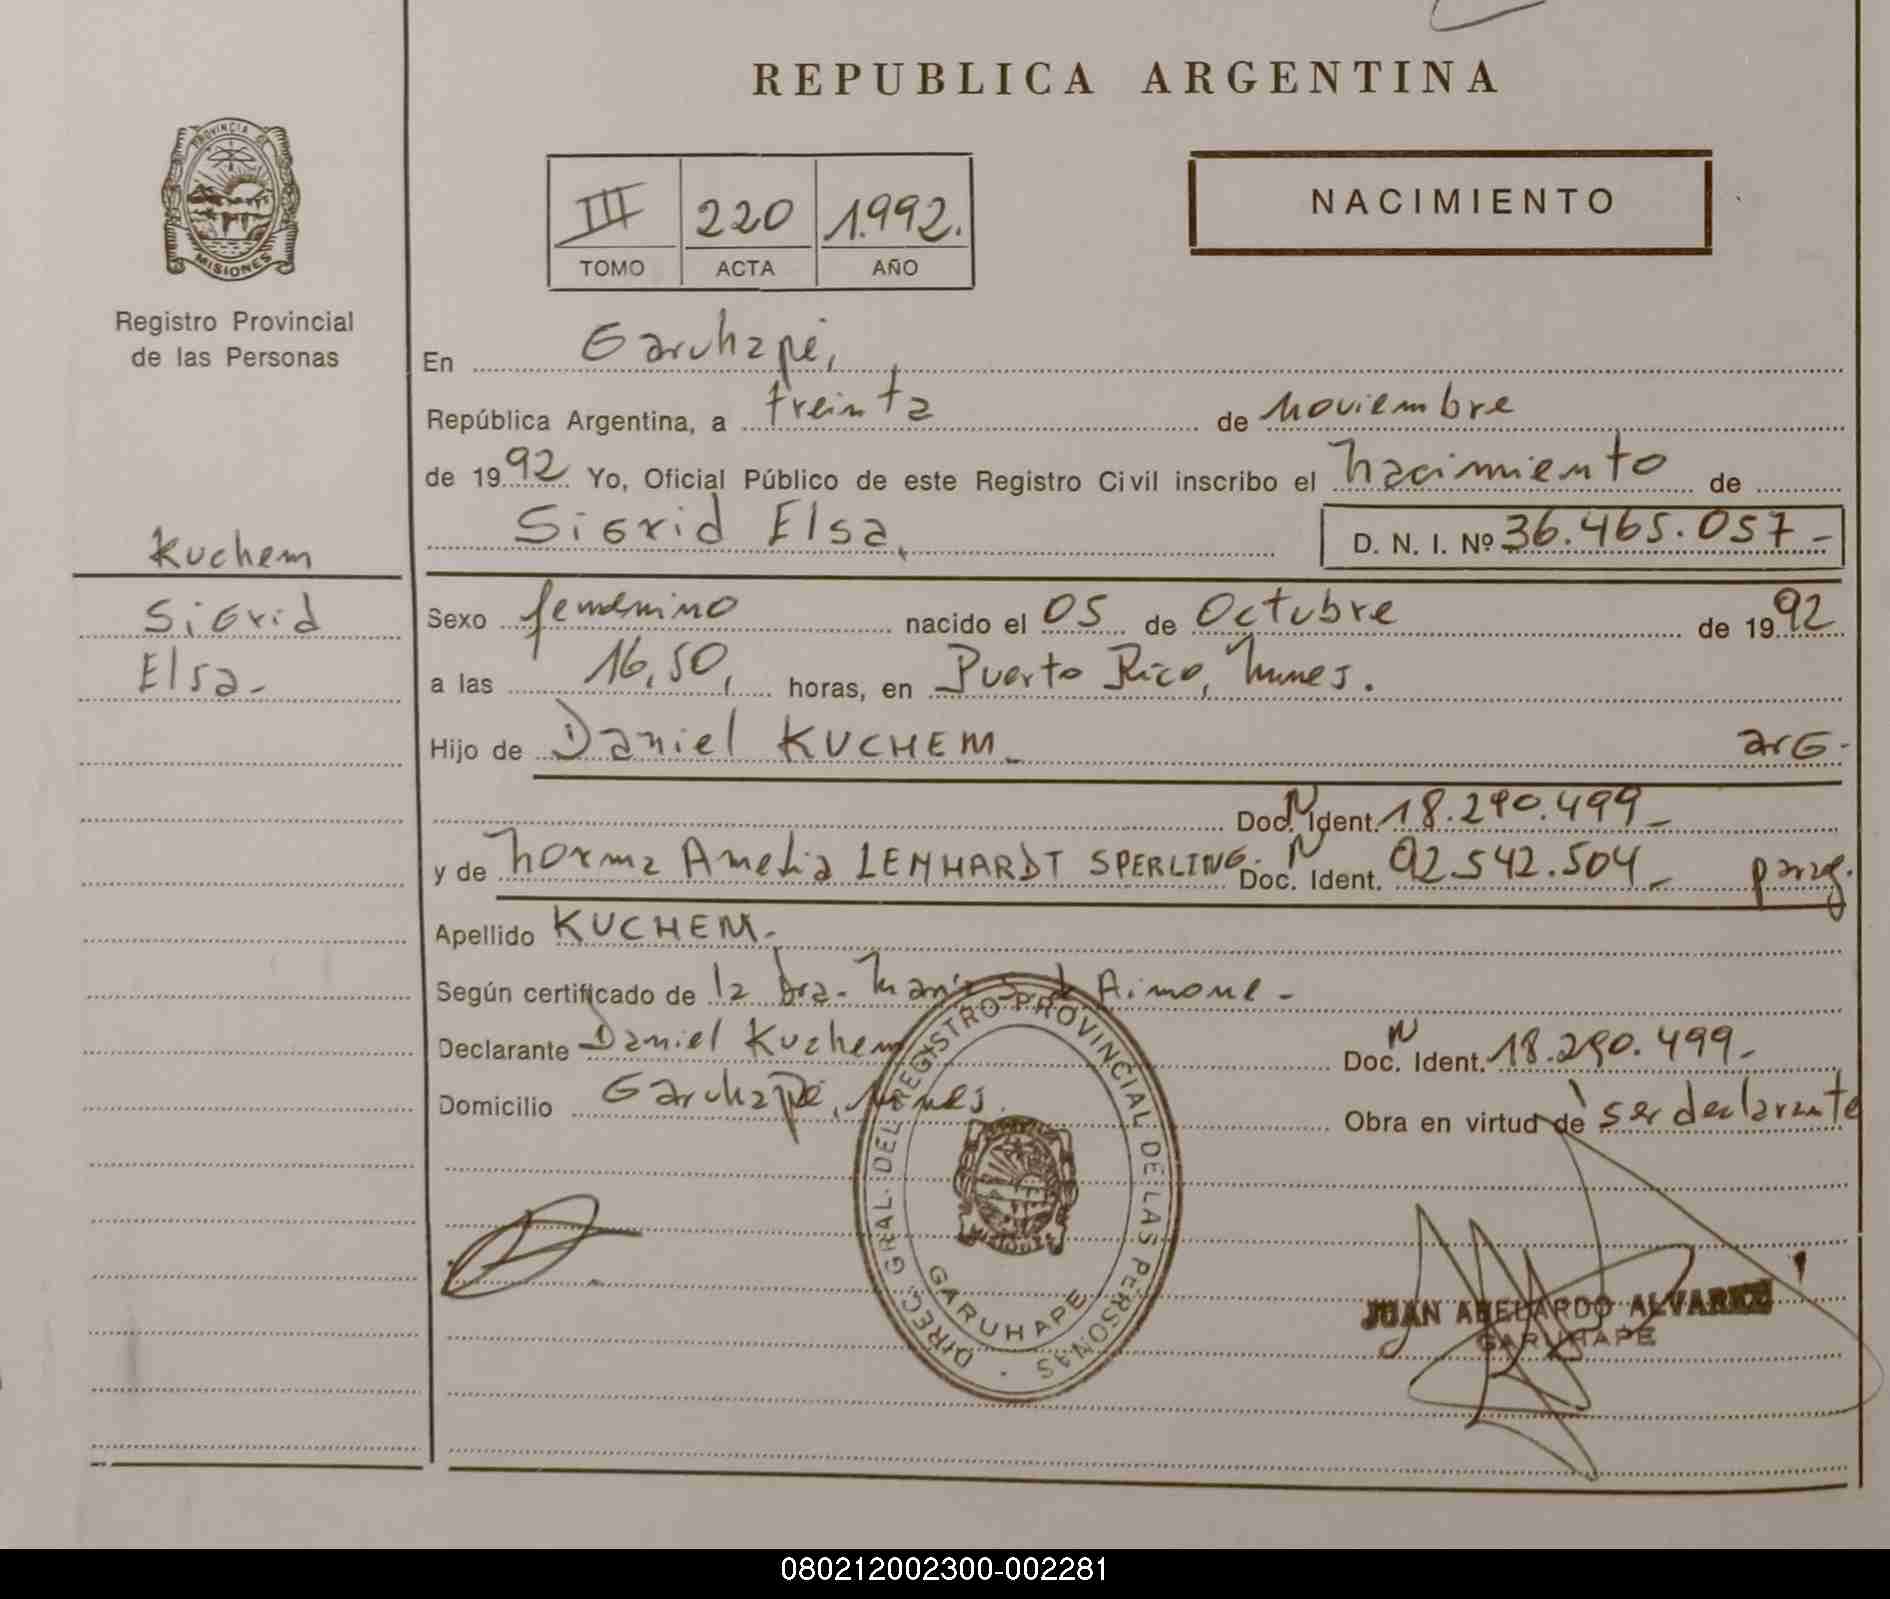 REPUBLICA ARGENTINA
PROVINCIA DE
MISIONES
Registro Provincial
de las Personas
III 220 1.992.
TOMO ACTA AÑO
NACIMIENTO
En Garuhapé,
República Argentina, a treinta de noviembre
de 1992 Yo, Oficial Público de este Registro Civil inscribo el nacimiento de
Sigrid Elsa, D. N. I. Nº 36.465.057-
Kuchem
Sigrid
Elsa-
Sexo femenino nacido el 05 de Octubre de 1992
a las 16,50, horas, en Puerto Rico, Mnes.
Hijo de Daniel KUCHEM arg-
Doc. N Ident. 18.290.499-
y de Norma Amelia LENHARDT SPERLING- Doc. N Ident. 92.542.504- parag.
Apellido KUCHEM-
Según certificado de la Dra. María S. de Aimone-
Declarante Daniel Kuchem Doc. N Ident. 18.290.499-
Domicilio Garuhapé, Mnes. Obra en virtud de ser declarante
DIREC. GRAL. DEL REGISTRO PROVINCIAL DE LAS PERSONAS
GARUHAPE
JUAN ABELARDO ALVAREZ
GARUHAPE
080212002300-002281